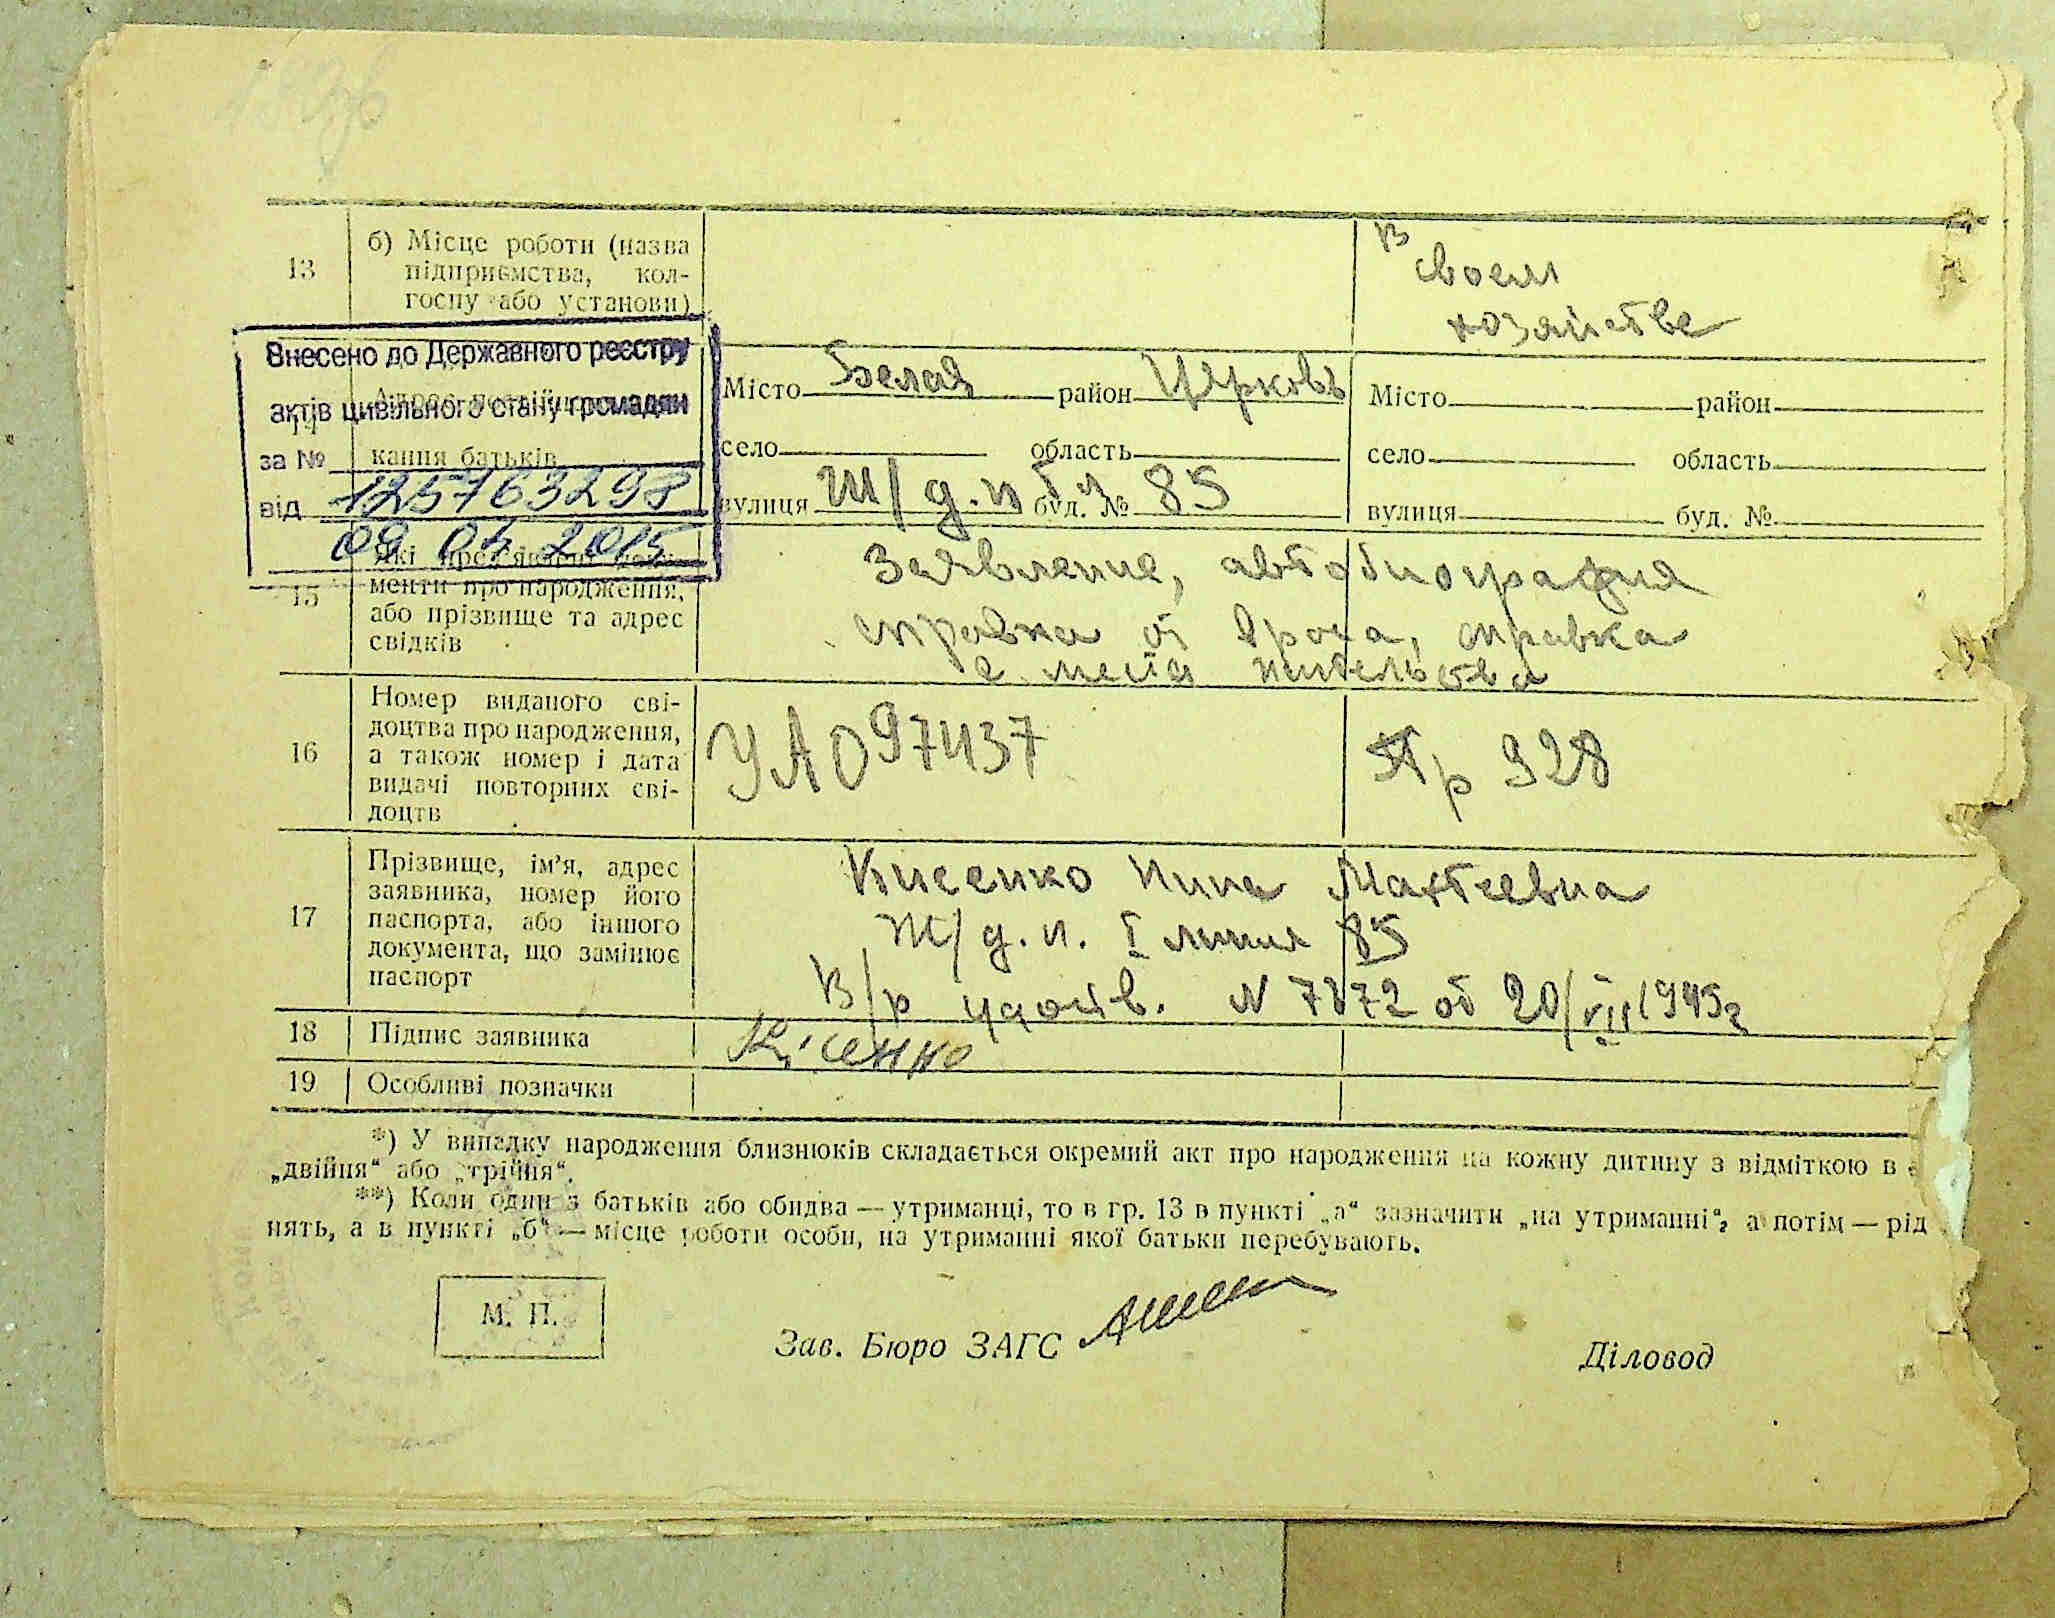 13
б) Місце роботи (назва
підприємства, кол-
госпу або установи)
В
своем
хозяйстве
Внесено до Державного реєстру
актів цивільного стану громадян
за № 125763298
від 09 04 2015
кання батьків
Місто Белая район Церковь
село область
вулиця Ж/д. п буд. № 85
Місто район
село область
вулиця буд. №
15
менти про народження,
або прізвище та адрес
свідків
Заявление, автобиография
справка от врача, справка
с места жительства
16
Номер виданого сві-
доцтва про народження,
а також номер і дата
видачі повторних сві-
доцтв
УА097437
Пр 328
17
Прізвище, ім'я, адрес
заявника, номер його
паспорта, або іншого
документа, що замінює
паспорт
Кисенко Нина Матвеевна
Ж/д. п. I линия 85
В/р удост. N 7872 от 20/VII 1945г
18 Підпис заявника
Кісенко
19 Особливі позначки
*) У випадку народження близнюків складається окремий акт про народження на кожну дитину з відміткою в
„двійня“ або „трійня“.
**) Коли один з батьків або обидва — утриманці, то в гр. 13 в пункті „а“ зазначити „на утриманні“, а потім — рід
нять, а в пункті „б“ — місце роботи особи, на утриманні якої батьки перебувають.
М. П.
Зав. Бюро ЗАГС
Діловод